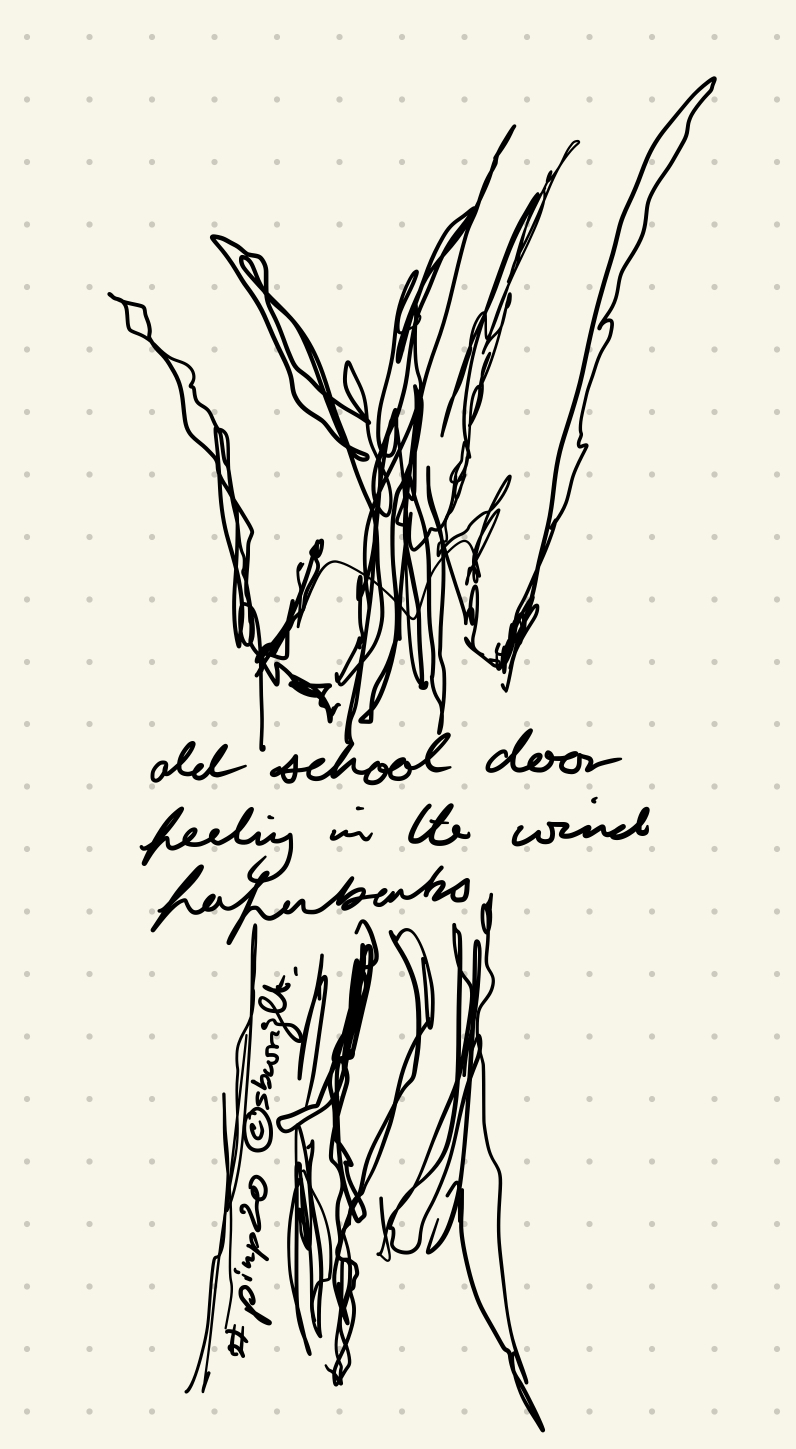 old school door
peeling in the wind
paperbarks
#pimp20 ©sbwright.